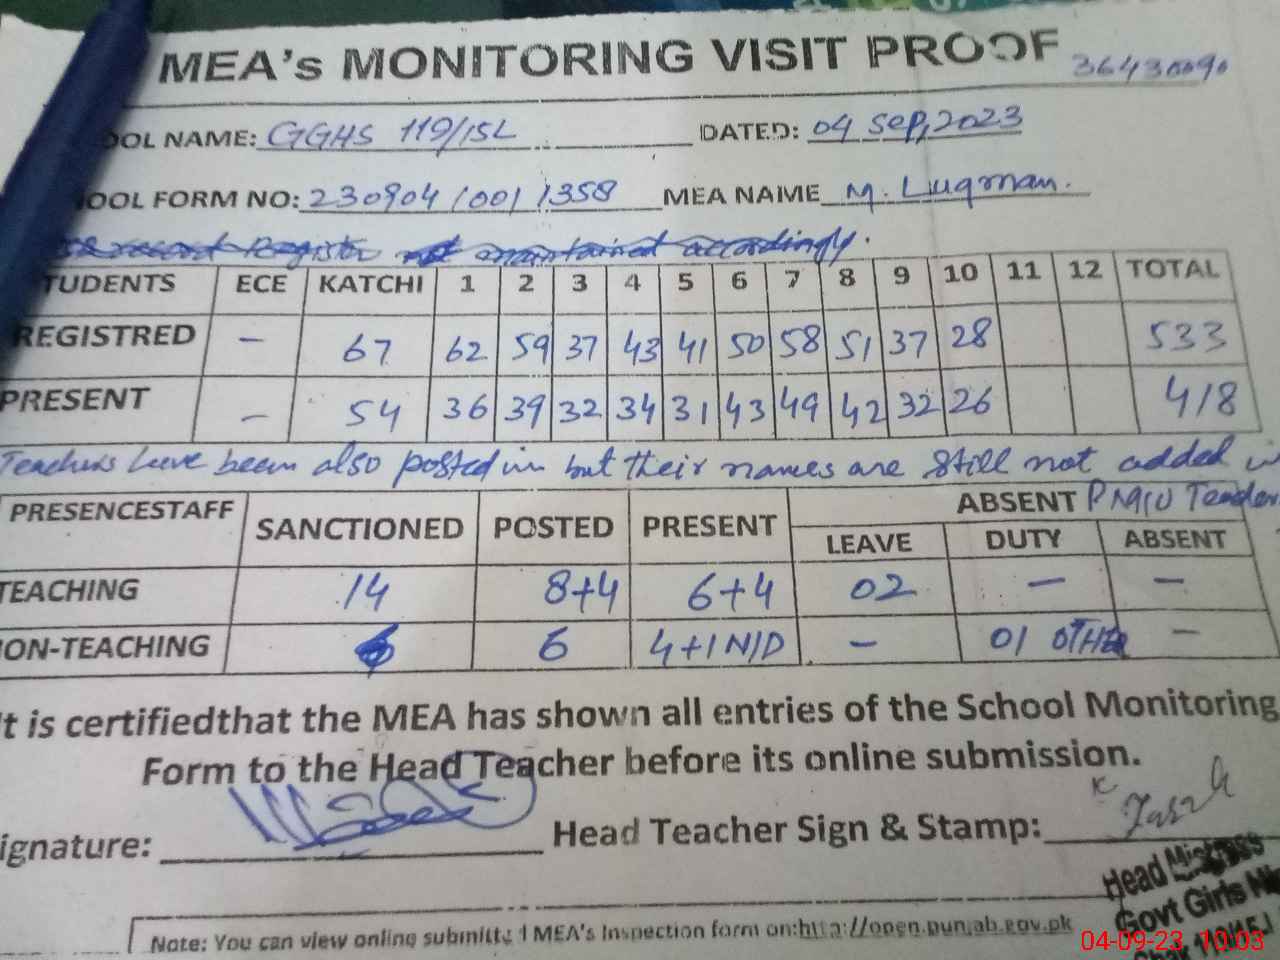 MEA's MONITORING VISIT PROOF 36430090
OOL NAME: GGHS 119/15L DATED: 04 Sep, 2023
OOL FORM NO: 230904/001/1358 MEA NAME M. Luqman.
record Register not maintained accordingly.
TUDENTS ECE KATCHI 1 2 3 4 5 6 7 8 9 10 11 12 TOTAL
REGISTRED — 67 62 59 37 43 41 50 58 51 37 28 533
PRESENT — 54 36 39 32 34 31 43 49 42 32 26 418
Teachers have been also posted in but their names are still not added in
PRESENCESTAFF SANCTIONED POSTED PRESENT ABSENT Teacher
LEAVE DUTY ABSENT
TEACHING 14 8+4 6+4 02 — —
ON-TEACHING 6 4+1 N/D — 01 OTHE —
t is certifiedthat the MEA has shown all entries of the School Monitoring
Form to the Head Teacher before its online submission.
ignature: Head Teacher Sign & Stamp:
Head Mistress
Govt Girls
Chak
Note: You can view online submitted MEA's Inspection form on:http://open.punjab.gov.pk
04-09-23 10:03